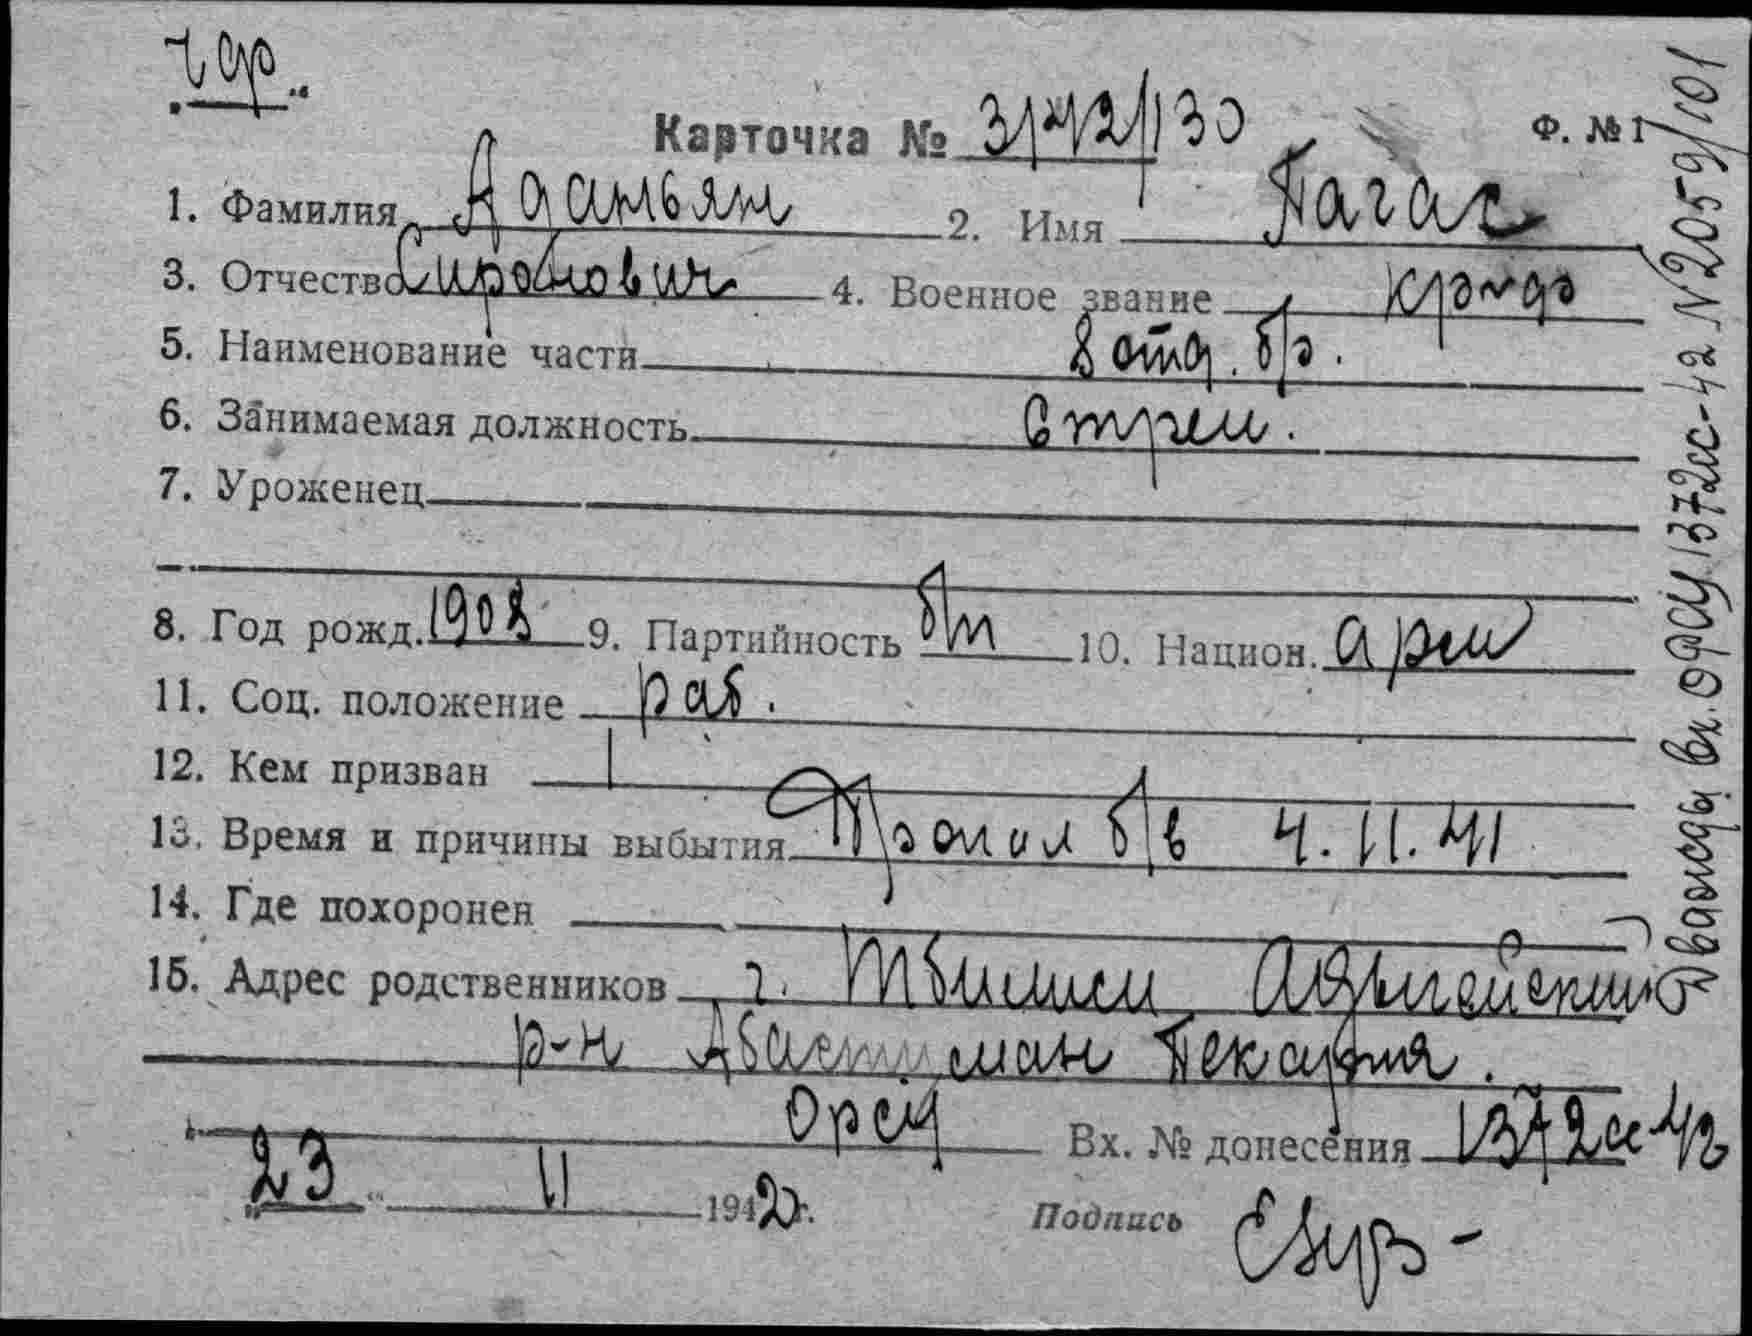 Карточка № 3/742/130
Ф. № 1
1. Фамилия Адамьян 2. Имя Пагас
3. Отчество Сиропович 4. Военное звание кр-ц
5. Наименование части 8 отд. б/р.
6. Занимаемая должность Стрел.
7. Уроженец
8. Год рожд. 1908 9. Партийность б/п 10. Национ. арм
11. Соц. положение раб.
12. Кем призван
13. Время и причины выбытия Пропал б/в 4.11.41
14. Где похоронен
15. Адрес родственников г. Тбилиси Адыгейский
р-н Абастуман Пекарня.
орсу Вх. № донесения 1372сс-42
23 11 1942 г. Подпись
Дважды вх. ОРСУ 1372сс-42 N 2059/101